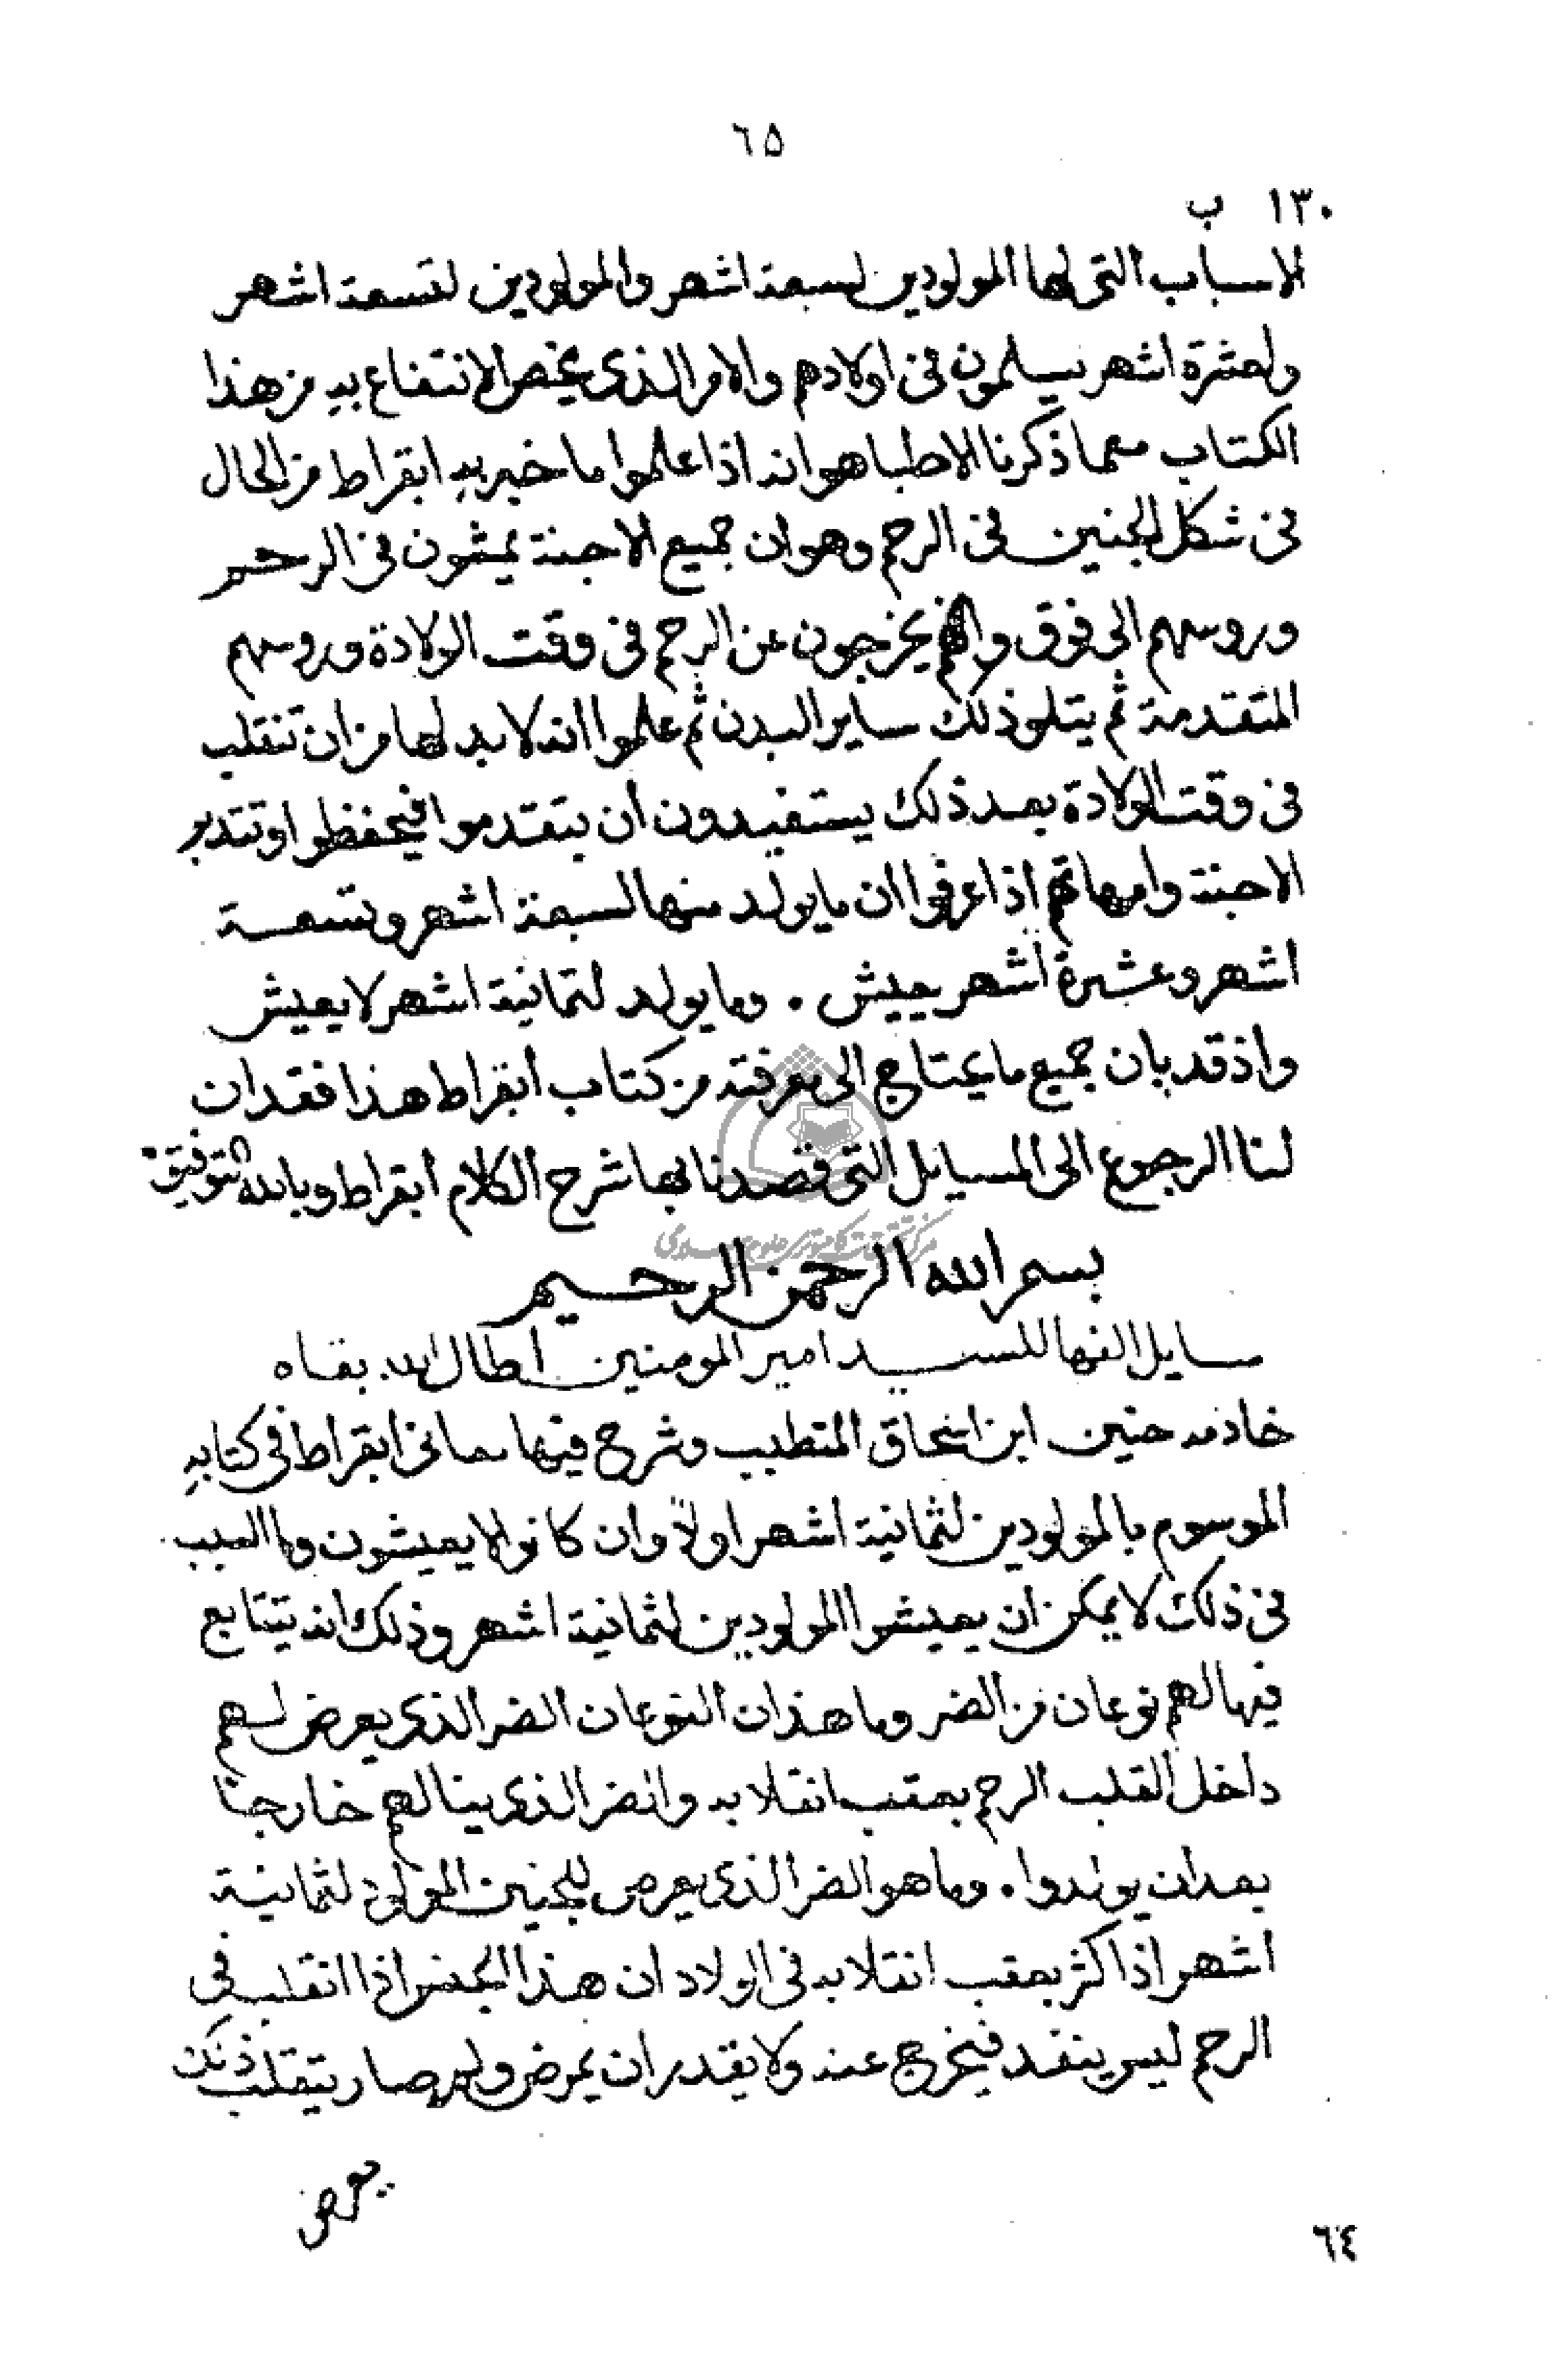 ٦٥
١٣٠ ب
الاسباب التى لها المولودين لسبعة اشهر والمولودين لتسعة اشهر
ولعشرة اشهر يسلمون فى اولادهم والامر الذى يخص الانتفاع به من هذا
الكتاب معما ذكرنا الاطبا هو انه اذا علموا ما خبر به ابقراط من الحال
فى شكل الجنين فى الرحم وهو ان جميع الاجنة يمشون فى الرحم
وروسهم الى فوق وانهم يخرجون عن الرحم فى وقت الولادة وروسهم
المتقدمة ثم يتلو ذلك ساير البدن ثم علموا انه لا بد لها من ان تنقلب
فى وقت الولادة بعد ذلك يستفيدون ان يتقدموا فيحفظوا وتتدبر
الاجنة وامهاتهم اذا عرفوا ان ما يولد منها لسبعة اشهر وتسعة
اشهر وعشرة اشهر يعيش . وما يولد لثمانية اشهر لا يعيش
واذ قد بان جميع ما يحتاج الى معرفته من كتاب ابقراط هذا فقد ان
لنا الرجوع الى المسايل التى قصدنا بها شرح الكلام ابقراط وبالله التوفيق
بسم الله الرحمن الرحيم
مسايل الفها للسيد امير المومنين اطال الله بقاه
خادمه حنين ابن اسحاق المتطبب وشرح فيها معانى ابقراط فى كتابه
الموسوم بالمولودين لثمانية اشهر اولا وان كانوا لا يعيشون وما السبب
فى ذلك لا يمكن ان يعيشوا المولودين لثمانية اشهر وذلك انه يتتابع
فيها لهم نوعان من الضر وما هذان النوعان الضر الذى يعرض لهم
داخل القلب الرحم بعقب انقلابه والضر الذى ينالهم خارجا
بعد ان يولدوا . وما هو الضر الذى يعرض للجنين المولود لثمانية
اشهر اذا كثر بعقب انقلابه فى الولاد ان هذا الجنين اذا انقلب فى
الرحم ليس ينفد فيخرج عنه ولا يقدر ان يمرض ولم صار يتقلب ذلك
يعرض
٦٤